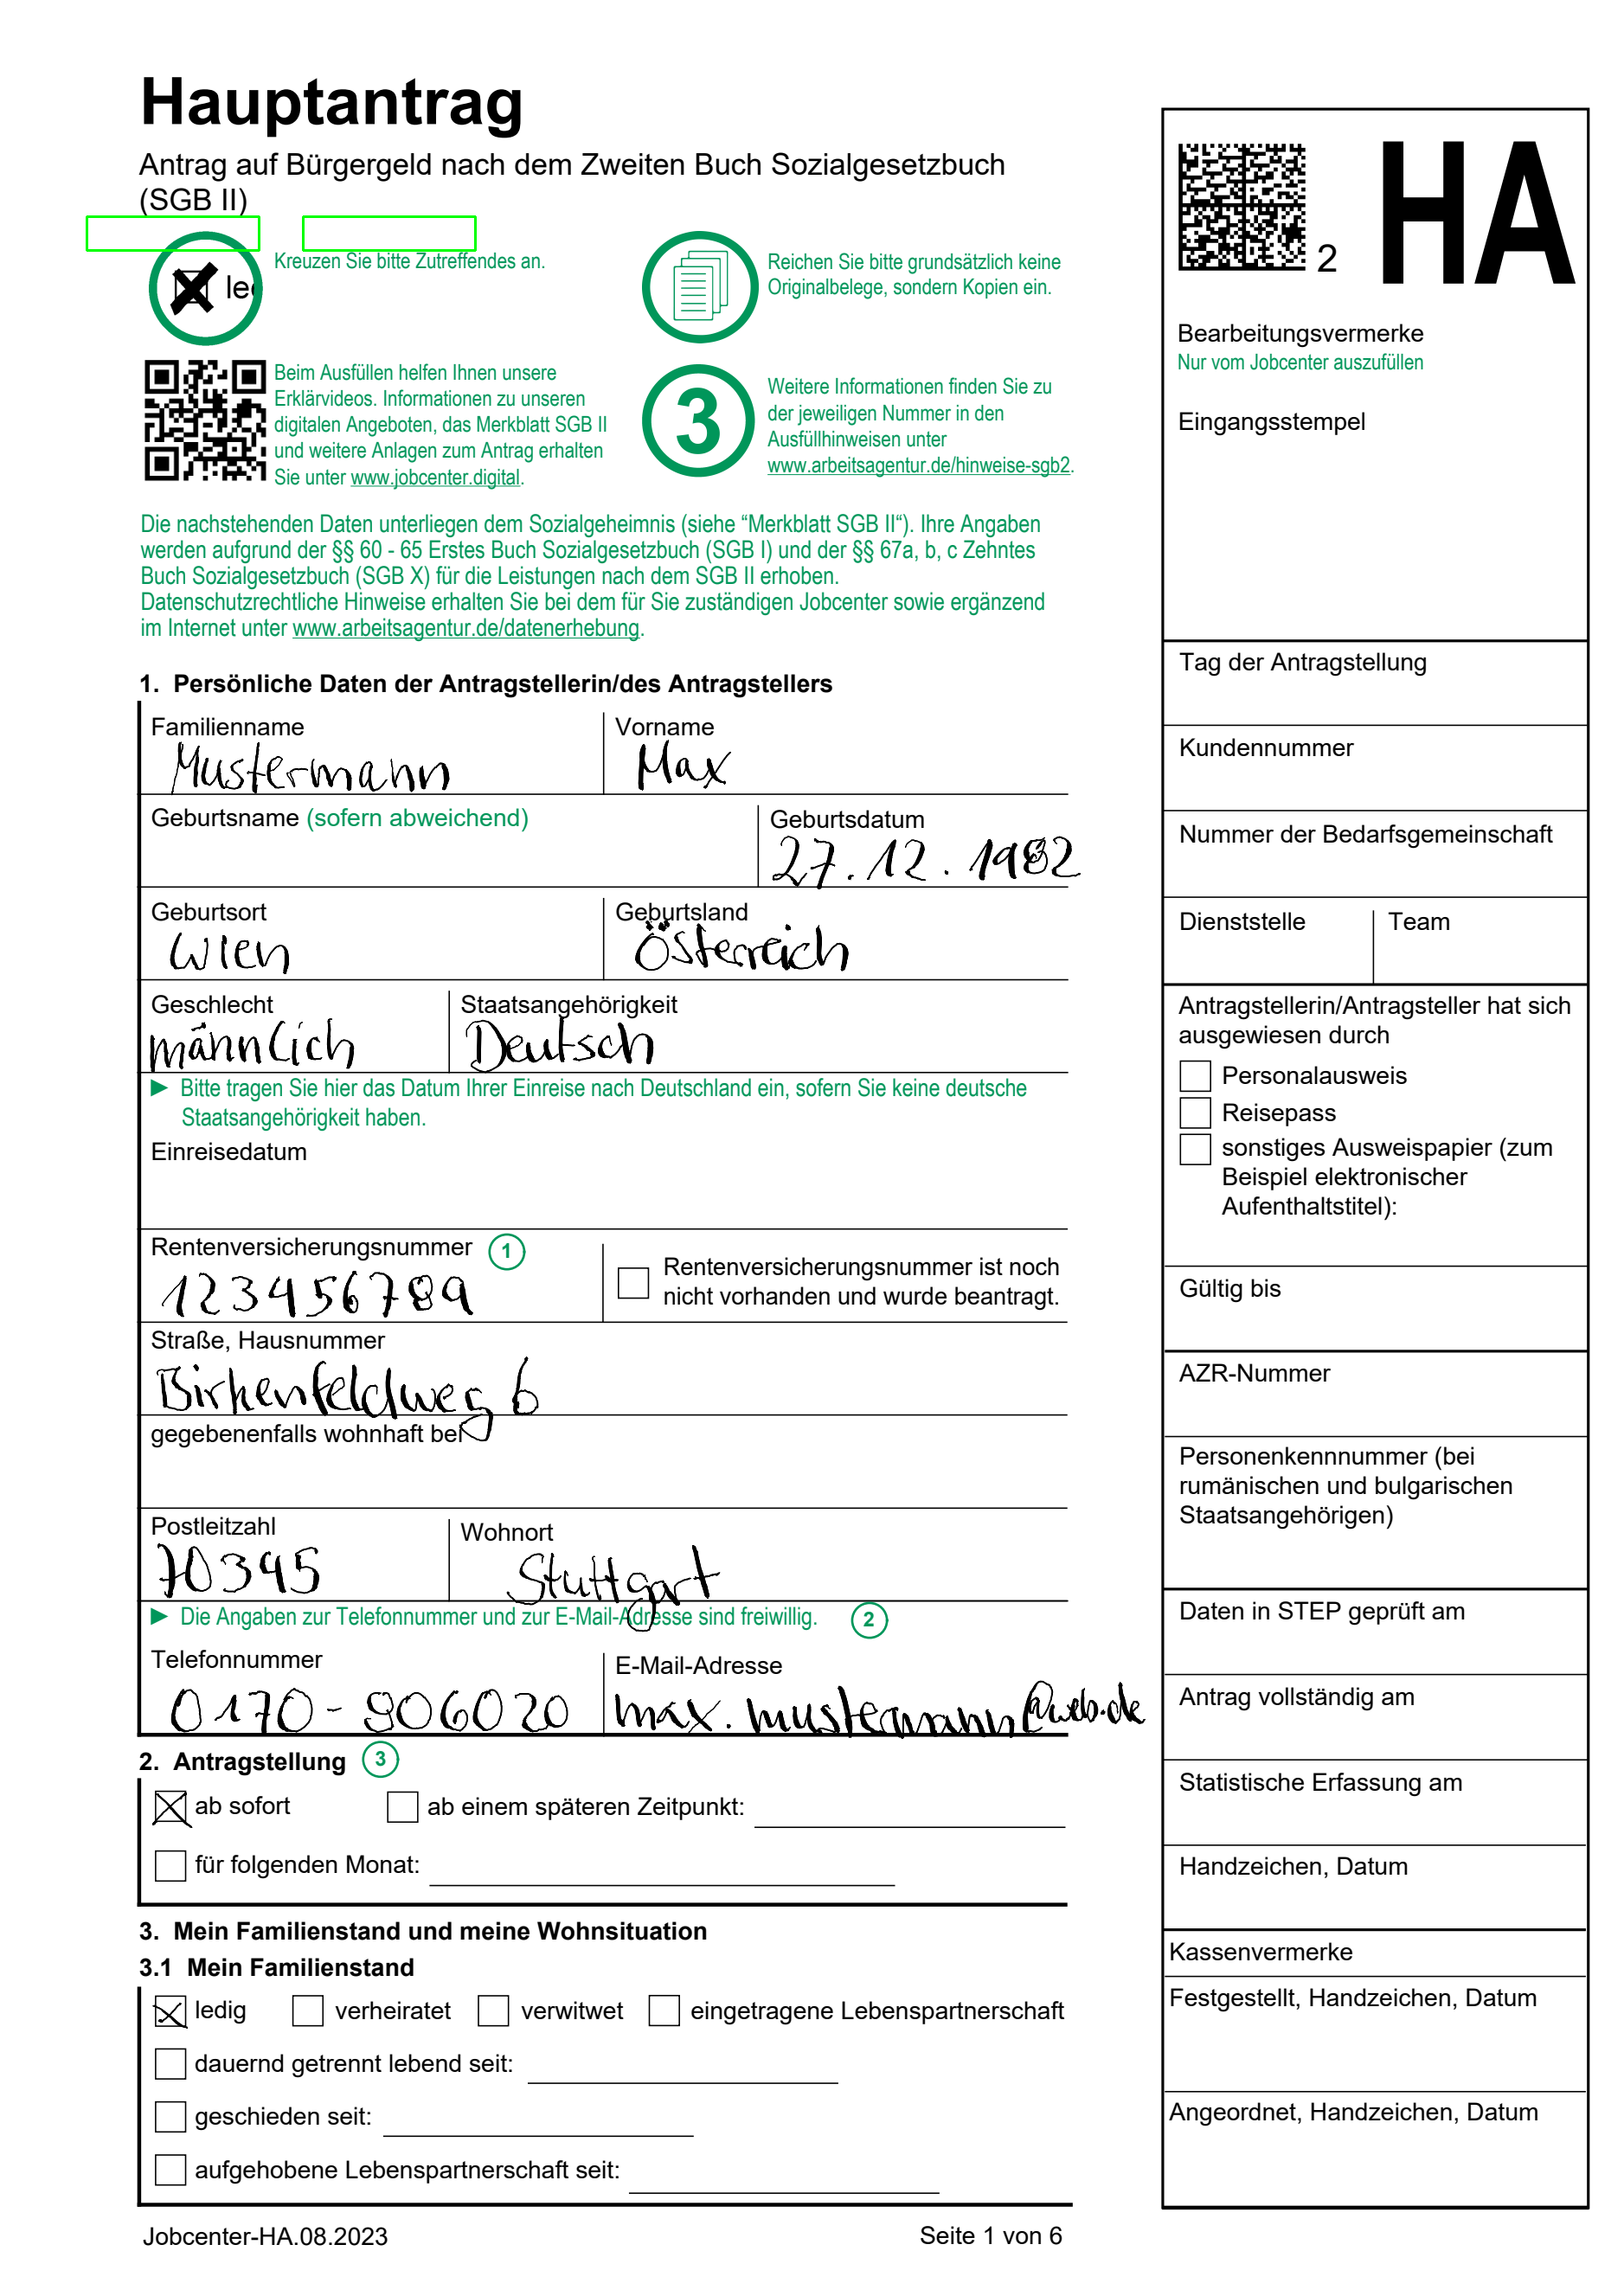 Hauptantrag
Antrag auf Bürgergeld nach dem Zweiten Buch Sozialgesetzbuch
(SGB II)
led
Kreuzen Sie bitte Zutreffendes an.
Reichen Sie bitte grundsätzlich keine
Originalbelege, sondern Kopien ein.
Beim Ausfüllen helfen Ihnen unsere
Erklärvideos. Informationen zu unseren
digitalen Angeboten, das Merkblatt SGB II
und weitere Anlagen zum Antrag erhalten
Sie unter www.jobcenter.digital.
3
Weitere Informationen finden Sie zu
der jeweiligen Nummer in den
Ausfüllhinweisen unter
www.arbeitsagentur.de/hinweise-sgb2.
Die nachstehenden Daten unterliegen dem Sozialgeheimnis (siehe “Merkblatt SGB II“). Ihre Angaben
werden aufgrund der §§ 60 - 65 Erstes Buch Sozialgesetzbuch (SGB I) und der §§ 67a, b, c Zehntes
Buch Sozialgesetzbuch (SGB X) für die Leistungen nach dem SGB II erhoben.
Datenschutzrechtliche Hinweise erhalten Sie bei dem für Sie zuständigen Jobcenter sowie ergänzend
im Internet unter www.arbeitsagentur.de/datenerhebung.
1. Persönliche Daten der Antragstellerin/des Antragstellers
Familienname
Mustermann
Vorname
Max
Geburtsname (sofern abweichend)
Geburtsdatum
27.12.1982
Geburtsort
Wien
Geburtsland
Österreich
Geschlecht
männlich
Staatsangehörigkeit
Deutsch
► Bitte tragen Sie hier das Datum Ihrer Einreise nach Deutschland ein, sofern Sie keine deutsche
Staatsangehörigkeit haben.
Einreisedatum
Rentenversicherungsnummer 1
123456789
Rentenversicherungsnummer ist noch
nicht vorhanden und wurde beantragt.
Straße, Hausnummer
Birkenfeldweg 6
gegebenenfalls wohnhaft bei
Postleitzahl
70345
Wohnort
Stuttgart
► Die Angaben zur Telefonnummer und zur E-Mail-Adresse sind freiwillig. 2
Telefonnummer
0170-906020
E-Mail-Adresse
max.mustermann@web.de
2. Antragstellung 3
ab sofort
ab einem späteren Zeitpunkt:
für folgenden Monat:
3. Mein Familienstand und meine Wohnsituation
3.1 Mein Familienstand
ledig verheiratet verwitwet eingetragene Lebenspartnerschaft
dauernd getrennt lebend seit:
geschieden seit:
aufgehobene Lebenspartnerschaft seit:
Jobcenter-HA.08.2023
Seite 1 von 6
2 HA
Bearbeitungsvermerke
Nur vom Jobcenter auszufüllen
Eingangsstempel
Tag der Antragstellung
Kundennummer
Nummer der Bedarfsgemeinschaft
Dienststelle
Team
Antragstellerin/Antragsteller hat sich
ausgewiesen durch
Personalausweis
Reisepass
sonstiges Ausweispapier (zum
Beispiel elektronischer
Aufenthaltstitel):
Gültig bis
AZR-Nummer
Personenkennnummer (bei
rumänischen und bulgarischen
Staatsangehörigen)
Daten in STEP geprüft am
Antrag vollständig am
Statistische Erfassung am
Handzeichen, Datum
Kassenvermerke
Festgestellt, Handzeichen, Datum
Angeordnet, Handzeichen, Datum